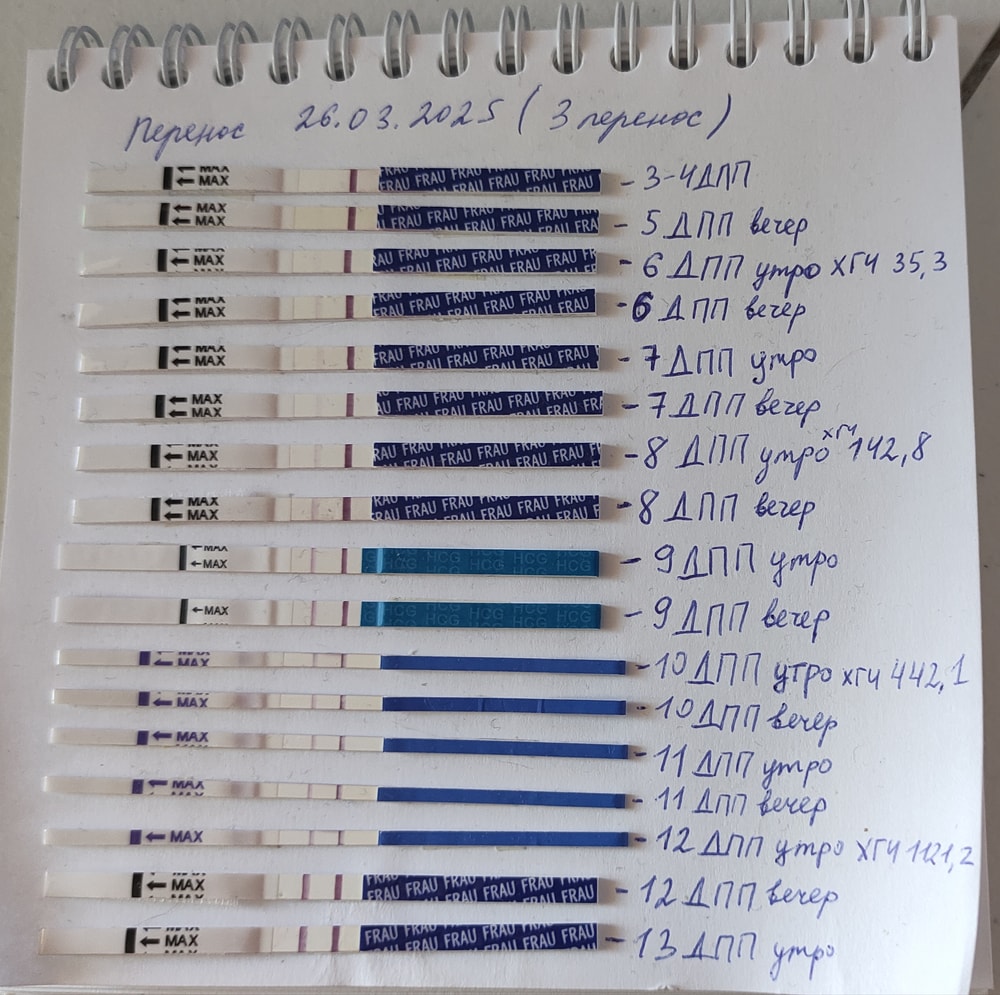 Перенос 26.03.2025 (3 перенос)
MAX MAX FRAU FRAU FRAU FRAU FRAU FRAU FRAU FRAU - 3-4ДПП
MAX MAX FRAU FRAU FRAU FRAU FRAU FRAU FRAU - 5 ДПП вечер
MAX FRAU FRAU FRAU FRAU FRAU - 6 ДПП утро ХГЧ 35,3
MAX MAX FRAU FRAU FRAU FRAU FRAU FRAU - 6 ДПП вечер
MAX MAX FRAU FRAU FRAU FRAU FRAU FRAU - 7 ДПП утро
MAX MAX FRAU FRAU FRAU FRAU FRAU - 7 ДПП вечер
MAX MAX FRAU FRAU FRAU FRAU FRAU - 8 ДПП утро хгч 142,8
MAX MAX FRAU FRAU FRAU FRAU FRAU - 8 ДПП вечер
MAX MAX HCG HCG HCG HCG - 9 ДПП утро
MAX HCG HCG HCG HCG - 9 ДПП вечер
MAX - 10 ДПП утро хгч 442,1
MAX - 10 ДПП вечер
MAX - 11 ДПП утро
MAX - 11 ДПП вечер
MAX - 12 ДПП утро ХГЧ 1121,2
MAX FRAU FRAU FRAU FRAU FRAU FRAU - 12 ДПП вечер
MAX FRAU FRAU FRAU FRAU FRAU FRAU - 13 ДПП утро